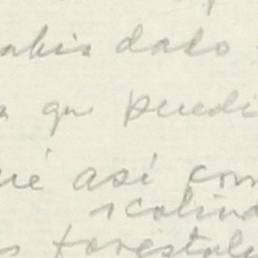 abis dado
a que puedi
ué así com
scalind
s forestale